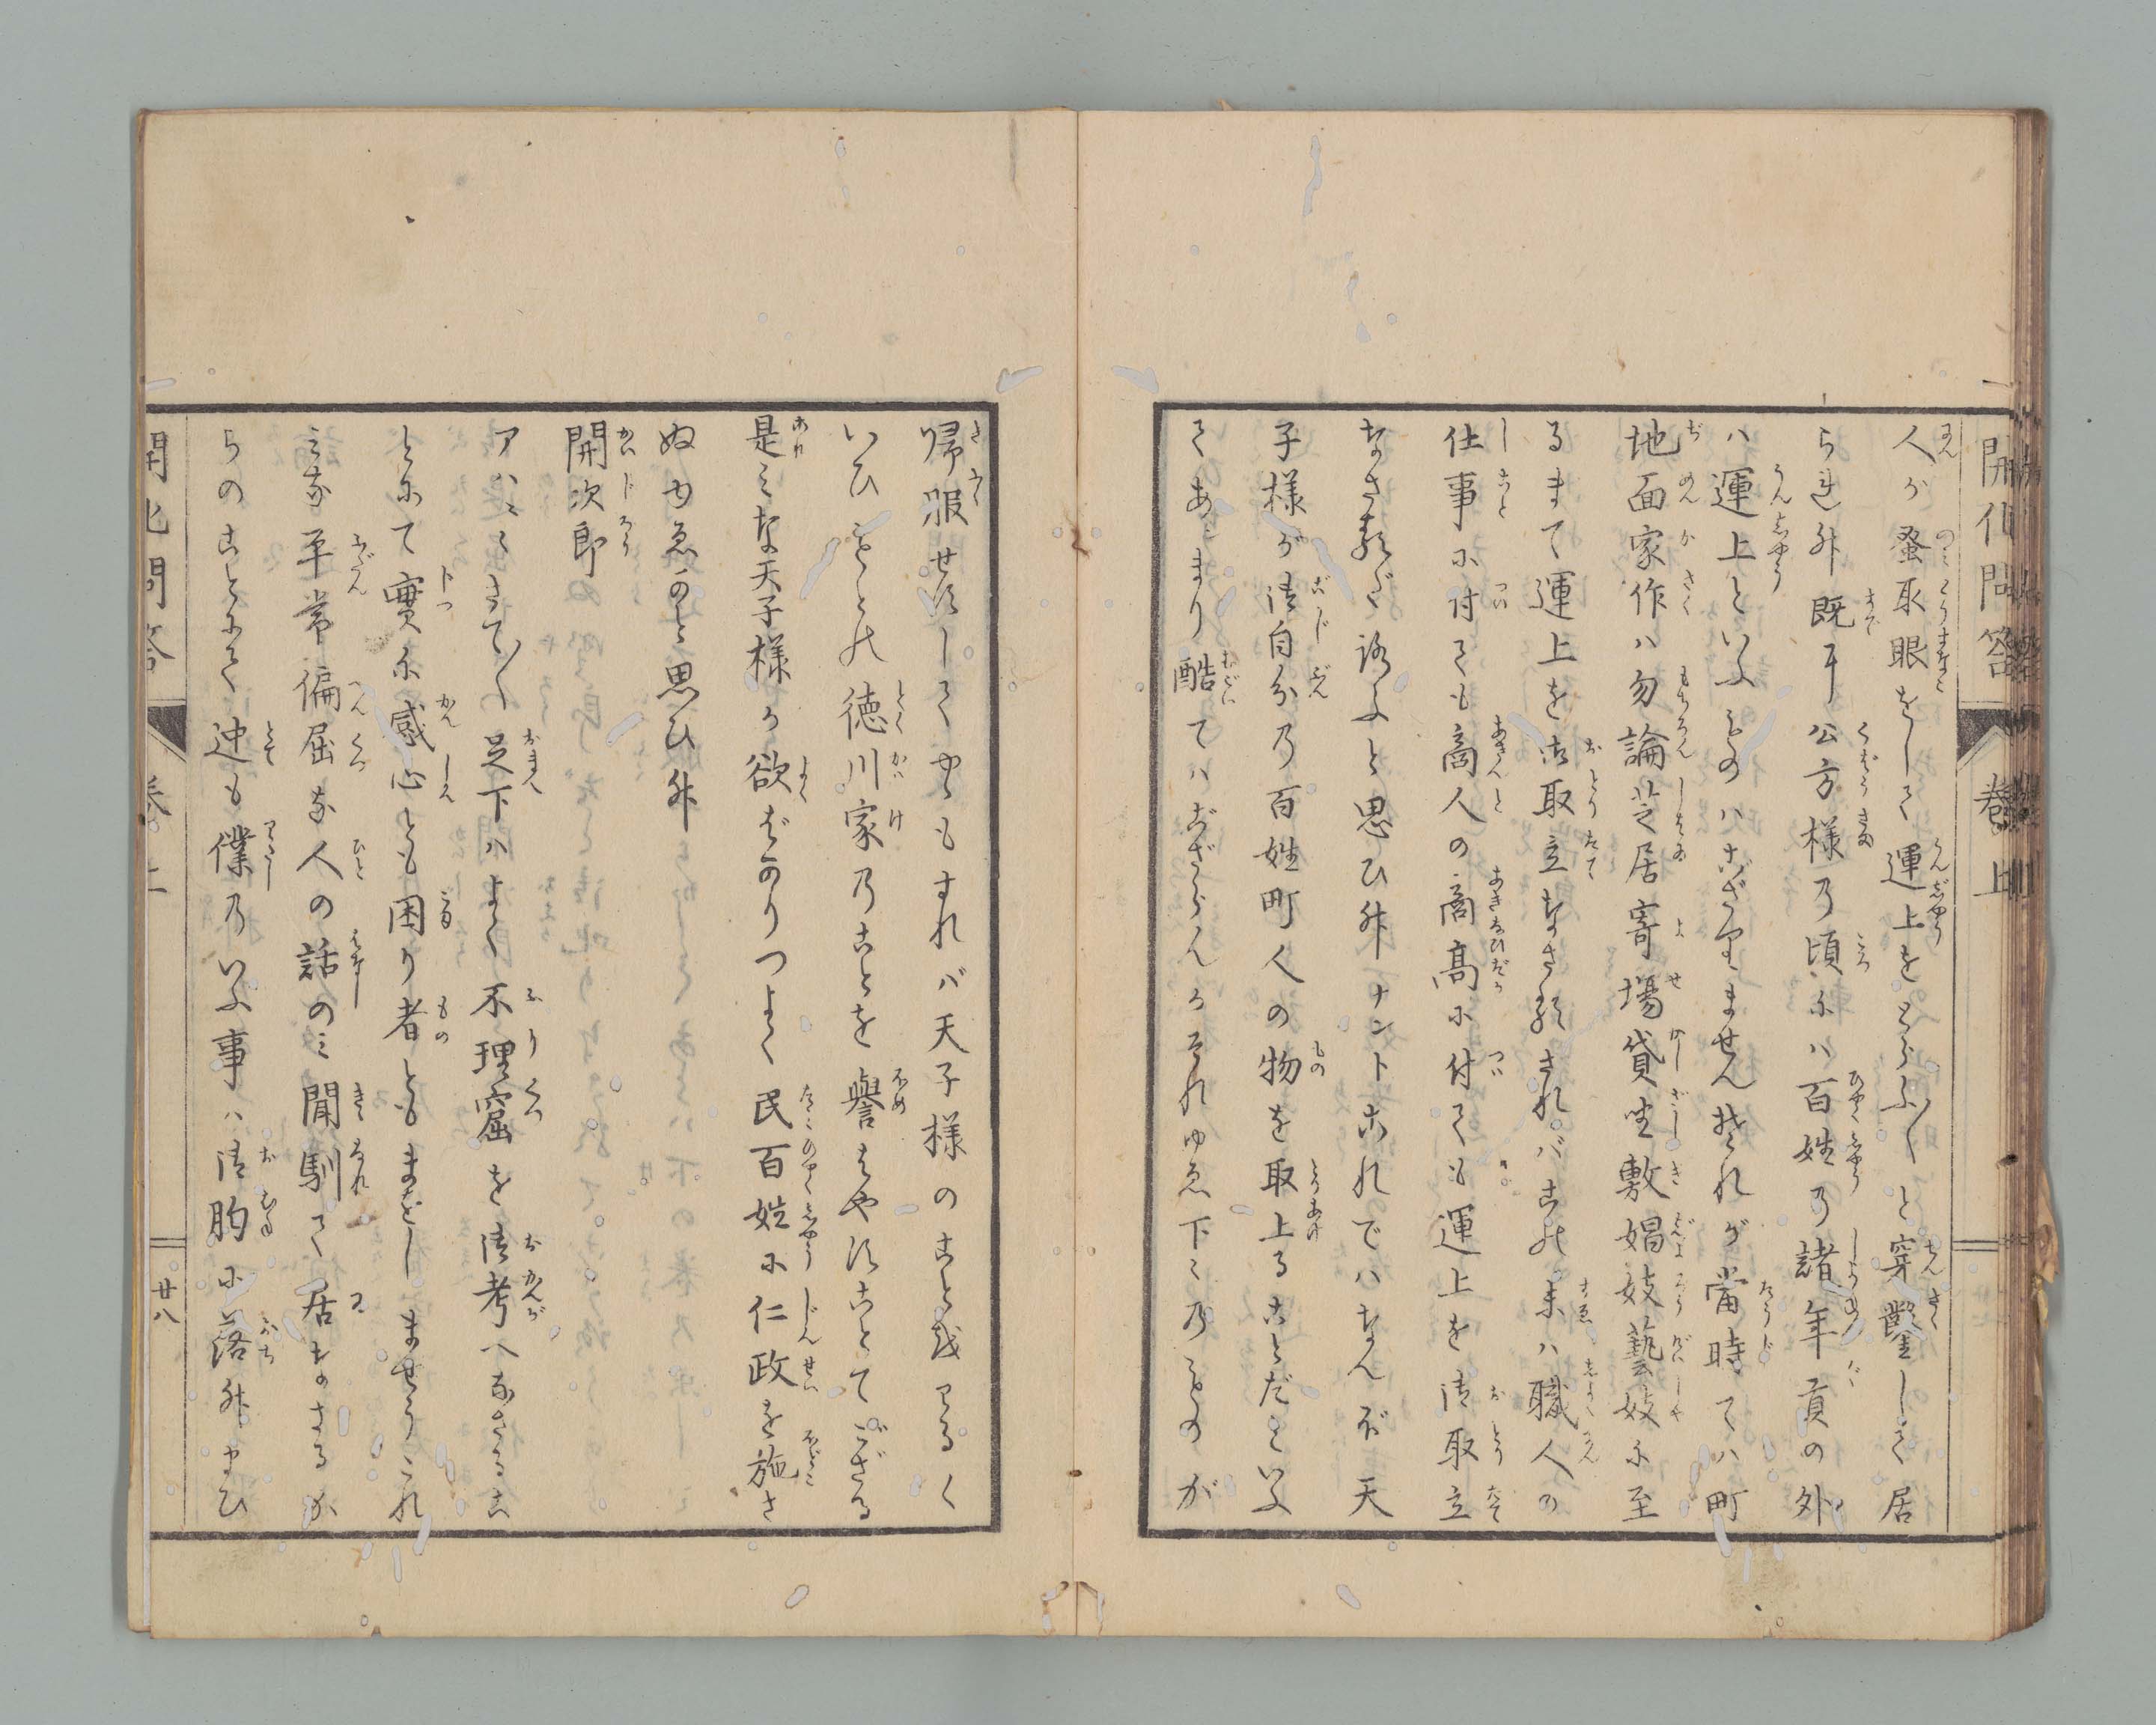 開化問答 巻上
人が蚤取眼をして運上をとらふ〱と穿鑿して居
られ舛既干公方様乃頃ハ百姓乃諸年貢の外
ハ運上といふものハござりませんそれが當時てハ町
地面家作ハ勿論芝居寄場貸坐敷娼妓藝妓に至
るまて運上を御取立なさるされバ其末ハ職人の
仕事に付ても商人の商高に付ても運上を御取立
なさるだろふと思ひ舛ナントこれでハなんぼ天
子様が御自分乃百姓町人の物を取上ることだといふ
てあンまり酷てハござらんかそれゆゑ下〻乃ものが
帰服せずしてやゝもすれバ天子様のことをわるく
いひもとの徳川家乃ことを譽はやすことてござる
是ミな天子様か欲ばかりつよく民百姓に仁政を施さ
ぬゆゑかと思ひ舛
開次郎
アハヽヽさて〱足下ハよく不理窟を御考へなさるこ
とにて實に感心とも困り者ともまをしませうこれ
ミな平常偏屈な人の話のミ聞馴て居なさるか
らのことにて迚も僕乃いふ事ハ御胸に落舛まひ
開化問答 巻上 廿八